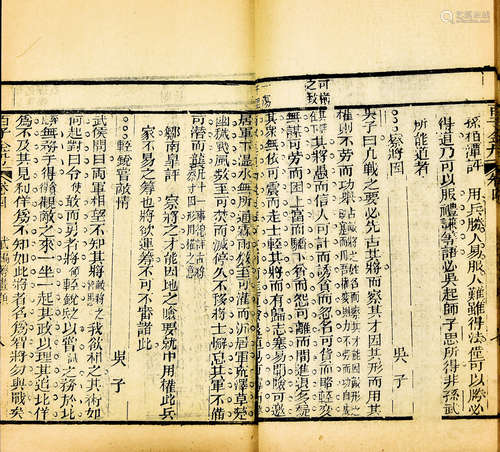 孫柏潭評 用兵勝人易服人難難得法僅可以勝必
得道乃可以服禮謙等語必吳起師子思所得非孫武
所能道者
察將因 吳子
吳子曰凡戰之要必先占其將而察其才因其形而用其
權則不勞而功舉
其將愚而信人可計而誘貪而忽名可貨而賂輕變
無謀可勞而困上富而驕下貧而怨可離而間進退多疑
其衆無依可震而走士輕其將而有歸志塞易開險可邀
居軍下濕水無所通霖雨數至可灌而沉居軍荒澤草楚
幽穢風飈數至可焚而滅停久不移將士懈怠其軍不備
可潛而襲
鄒南臯評 察將之才能因地之險要就中用權此兵
家不易之籌也將欲運籌不可不審諸此
輕銳嘗敵情 吳子
武侯問曰兩軍相望不知其將我欲相之其術如
何起對曰令賤而勇者將輕銳以嘗之務於北
無務於得觀敵之來一坐一起其政以理其追北佯
爲不及其見利佯爲不知如此將者名爲智將勿與戰矣